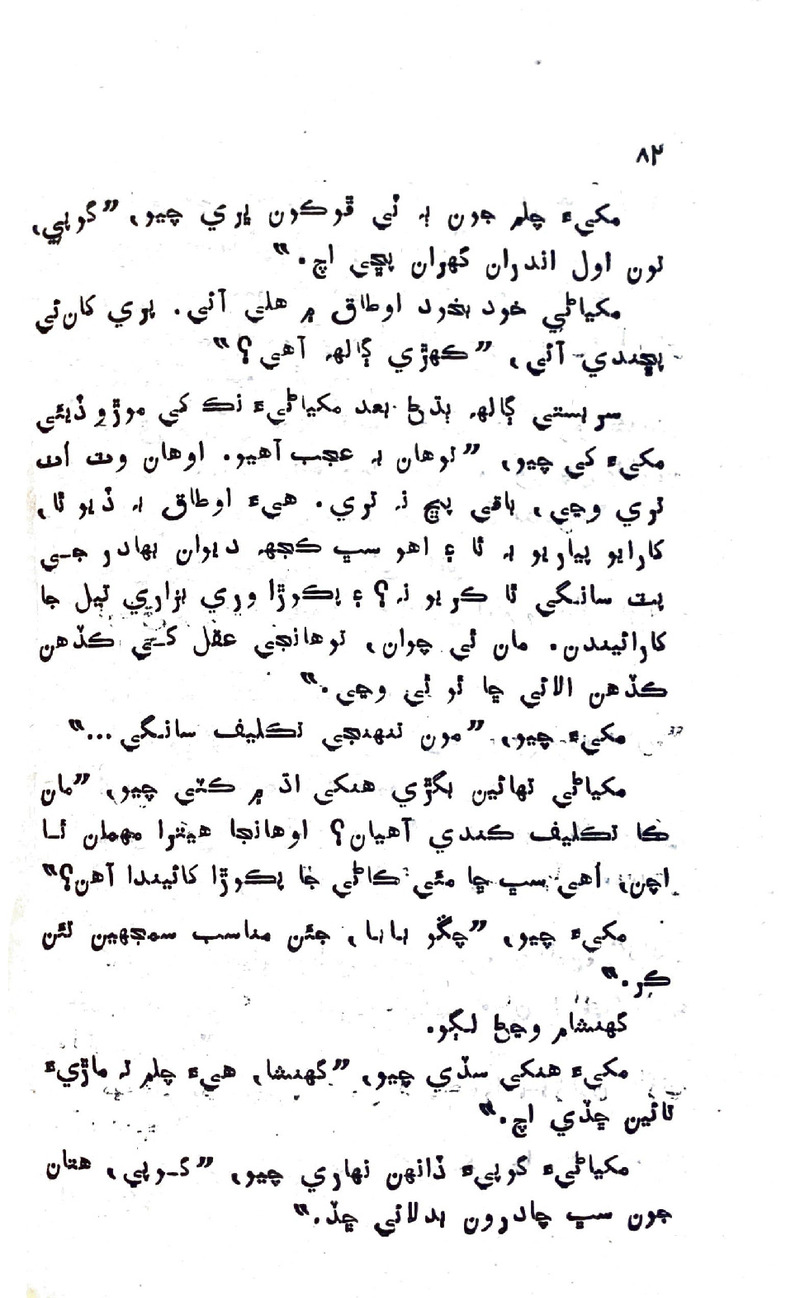 ۸۲
مکيءَ چلم جون ٻہ ٽي ڦوڪون ڀري چيو، ”گوپي،
تون اول اندران گهران پڇي اچ.“
مکياڻي خود بخود اوطاق ۾ هلي آئي. پري کان ئي
پڇندي آئي، ”ڪهڙي ڳالھ آهي؟“
سربستي ڳالھ ٻڌڻ بعد مکياڻيءَ نڪ کي موڙو ڏيئي
مکيءَ کي چيو، ”توهان بہ عجب آهيو. اوهان وٽ اٺ
تري وڃي، باقي پڇ نہ تري. هيءَ اوطاق بہ ڏيو ٿا،
کارايو پياريو بہ ٿا ۽ اهو سڀ ڪجھ ديوان بهادر جي
پٽ سانگي ٿا ڪريو نہ؟ ۽ پڪوڙا وري بزاري تيل جا
کارائيندن. مان ئي چوان، توهانجي عقل کي ڪڏهن
ڪڏهن الائي ڇا ٿو ٿي وڃي.“
مکيءَ چيو، ”مون تنهنجي تڪليف سانگي...“
مکياڻي تهائين بگڙي هنکي اڌ ۾ ڪٽي چيو، ”مان
ڪا تڪليف ڪندي آهيان؟ اوهانجا هيترا مهمان ٿا
اچن، اُهي سڀ ڇا مٺي ڪاڻي جا پڪوڙا کائيندا آهن؟“
مکيءَ چيو، ”چڱو بابا، جئن مناسب سمجهين تئن
ڪر.“
گهنشام وڃڻ لڳو.
مکيءَ هنکي سڏي چيو، ”گهنشا، هيءَ چلم تہ ماڙيءَ
تائين ڇڏي اچ.“
مکياڻيءَ گوپيءَ ڏانهن نهاري چيو، ”گوپي، هتان
جون سڀ چادرون بدلائي ڇڏ.“